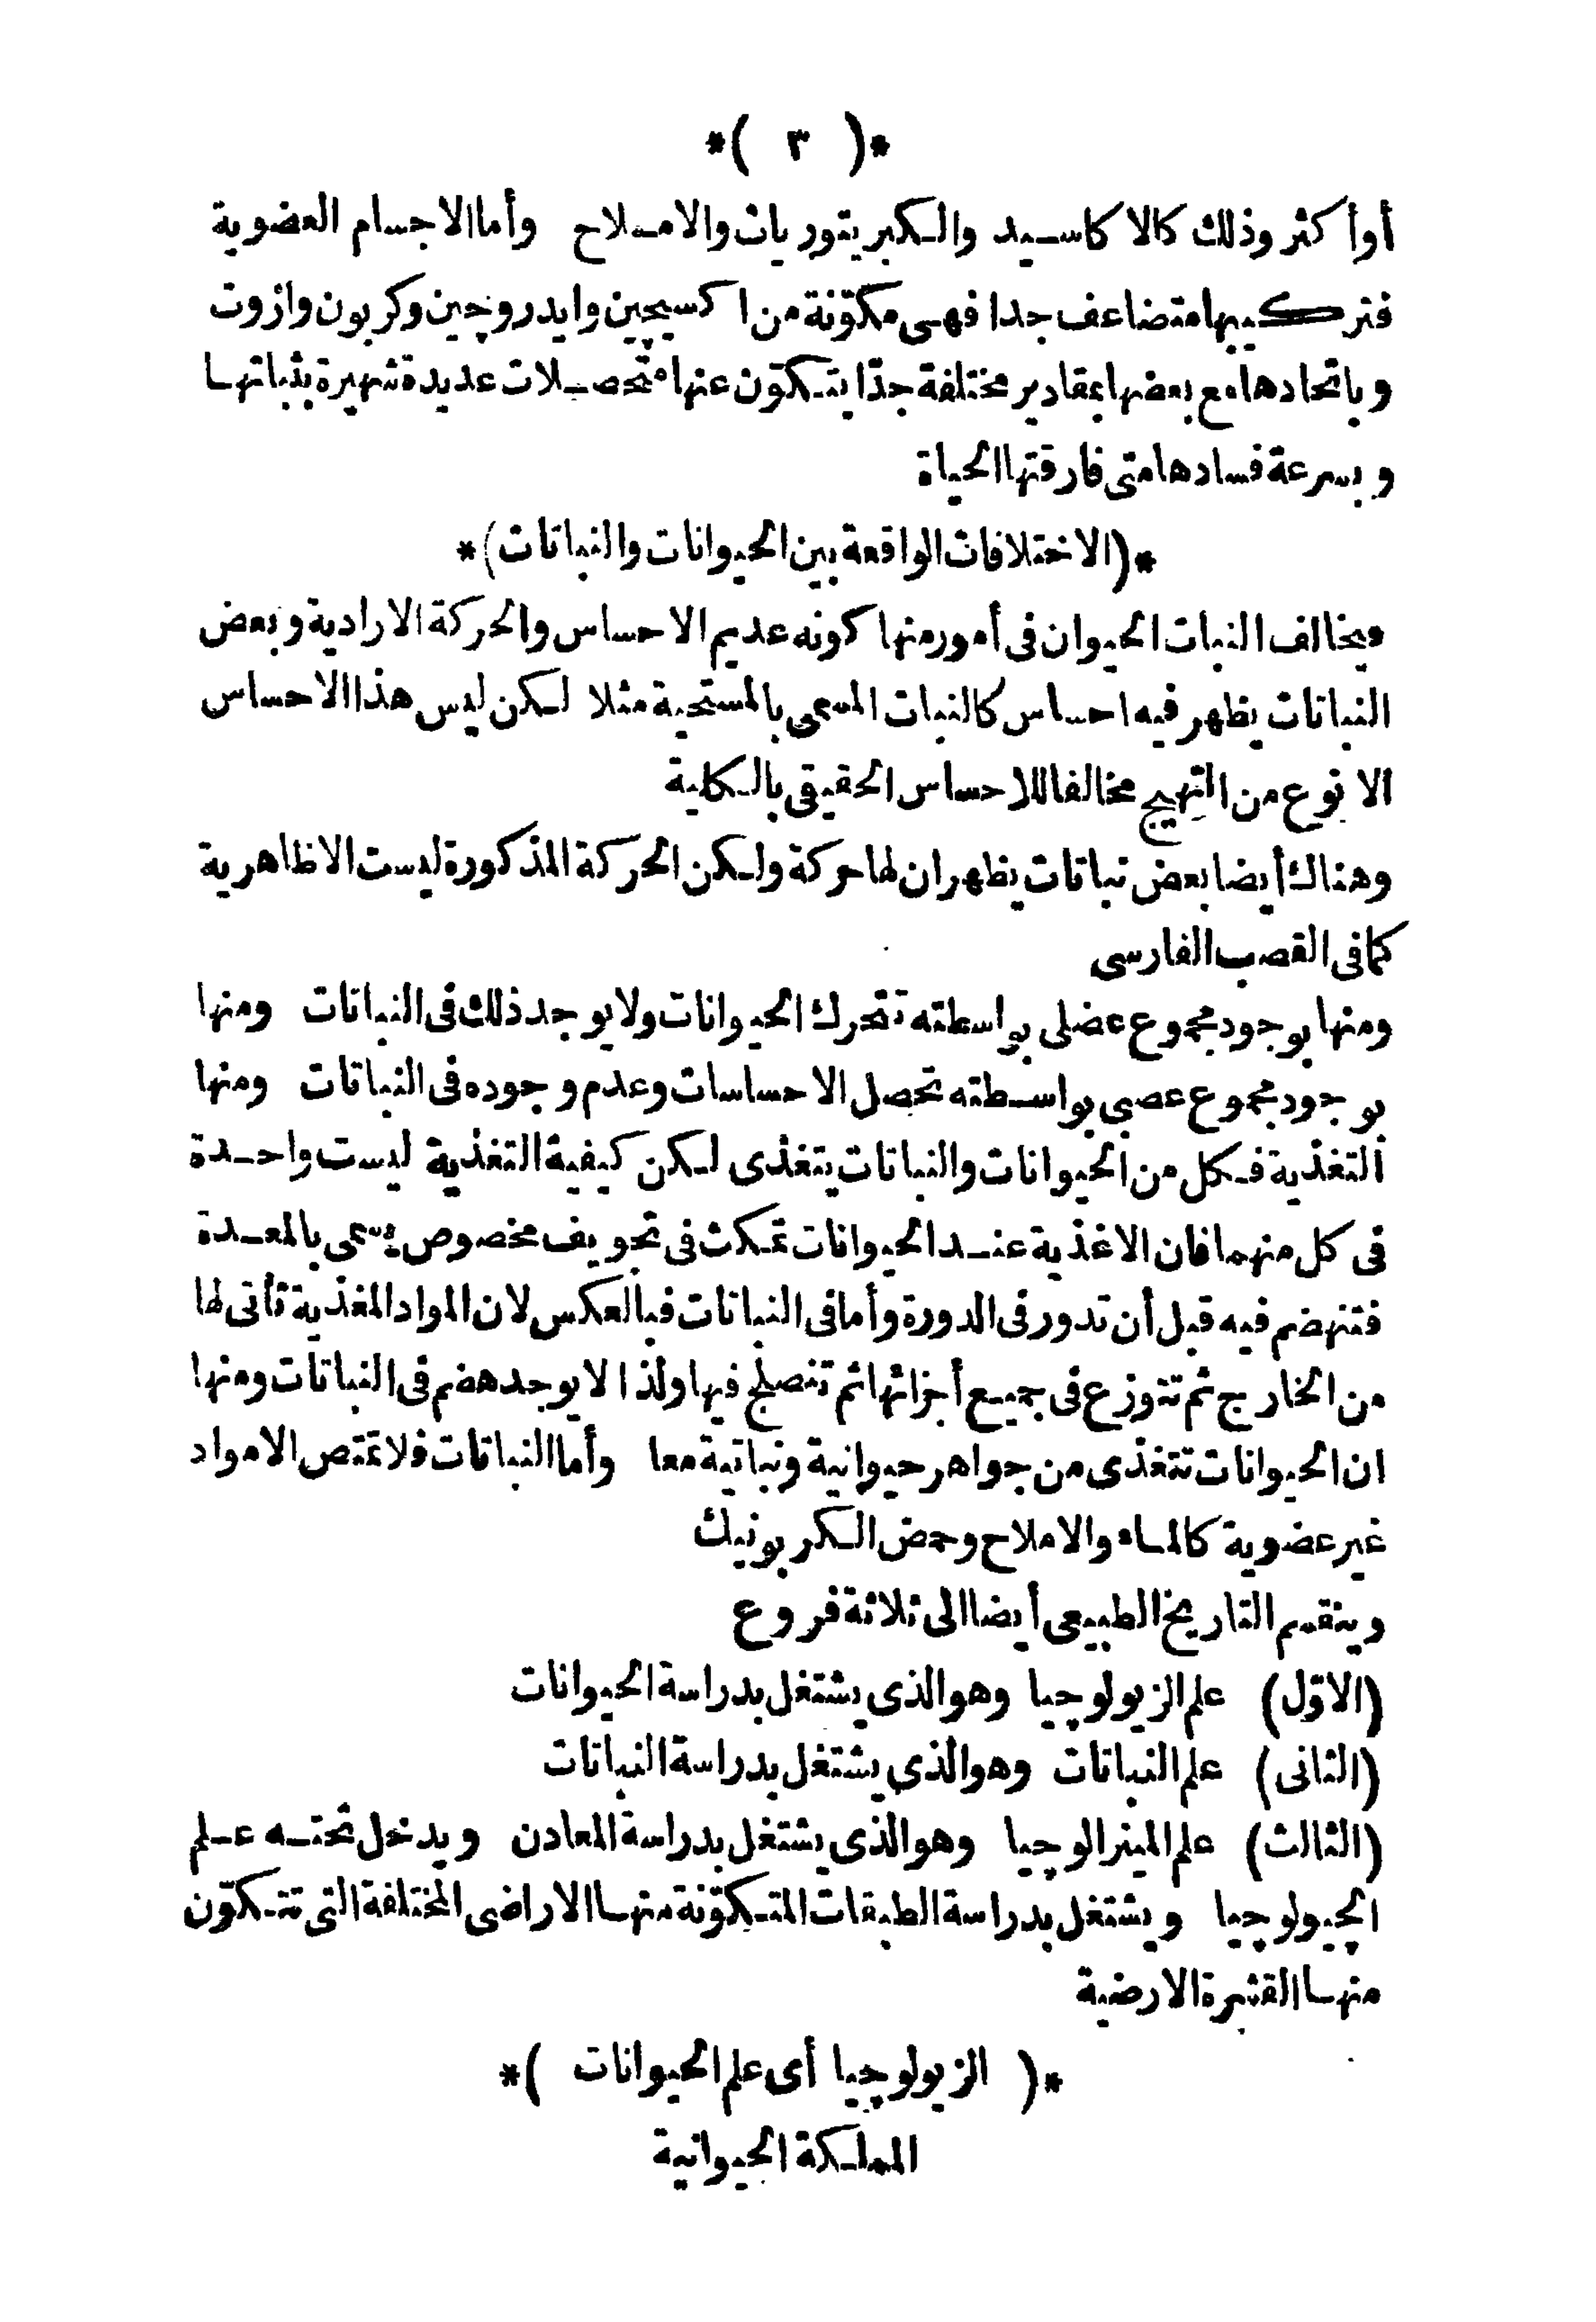 *( ٣ )*
أوأكثر وذلك كالاكاسيد والكبريتوريات والاملاح وأما الاجسام العضوية
فتركيبها متضاعف جدا فهى مكوّنة من اكسيچين وايدروچين وكربون وازوت
وباتحادها مع بعضها بمقادير مختلفة جدّا يتكوّن عنها متحصلات عديدة شهيرة بثباتها
وبسرعة فسادها متى فارقتها الحياة
*(الاختلافات الواقعة بين الحيوانات والنباتات)*
ويخالف النبات الحيوان فى أمور منها كونه عديم الاحساس والحركة الارادية وبعض
النباتات يظهر فيه احساس كالنبات المسمى بالمستحية مثلا لكن ليس هذا الاحساس
الا نوع من التهيج مخالفا للاحساس الحقيقى بالكلية
وهناك أيضا بعض نباتات يظهر ان لها حركة ولكن الحركة المذكورة ليست الا ظاهرية
كما فى القصب الفارسى
ومنها بوجود مجموع عضلى بواسطته تتحرك الحيوانات ولا يوجد ذلك فى النباتات ومنها
بوجود مجموع عصبى بواسطته تحصل الاحساسات وعدم وجوده فى النباتات ومنها
التغذية فكل من الحيوانات والنباتات يتغذى لكن كيفية التغذية ليست واحدة
فى كل منهما فان الاغذية عند الحيوانات تمكث فى تجويف مخصوص يسمى بالمعدة
فتنهضم فيه قبل أن تدور فى الدورة وأما فى النباتات فبالعكس لان المواد المغذية تأتى لها
من الخارج ثم تتوزع فى جميع أجزائها ثم تنصلح فيها ولذا لا يوجد هضم فى النباتات ومنها
ان الحيوانات تتغذى من جواهر حيوانية ونباتية معا وأما النباتات فلا تمتص الا مواد
غير عضوية كالماء والاملاح وحمض الكربونيك
وينقسم التاريخ الطبيعى أيضا الى ثلاثة فروع
(الاوّل) علم الزيولوچيا وهو الذى يشتغل بدراسة الحيوانات
(الثانى) علم النباتات وهو الذى يشتغل بدراسة النباتات
(الثالث) علم المينرالوچيا وهو الذى يشتغل بدراسة المعادن ويدخل تحته علم
الچيولوچيا ويشتغل بدراسة الطبقات المتكوّنة منها الاراضى المختلفة التى تتكوّن
منها القشرة الارضية
*( الزيولوچيا أى علم الحيوانات )*
المملكة الحيوانية